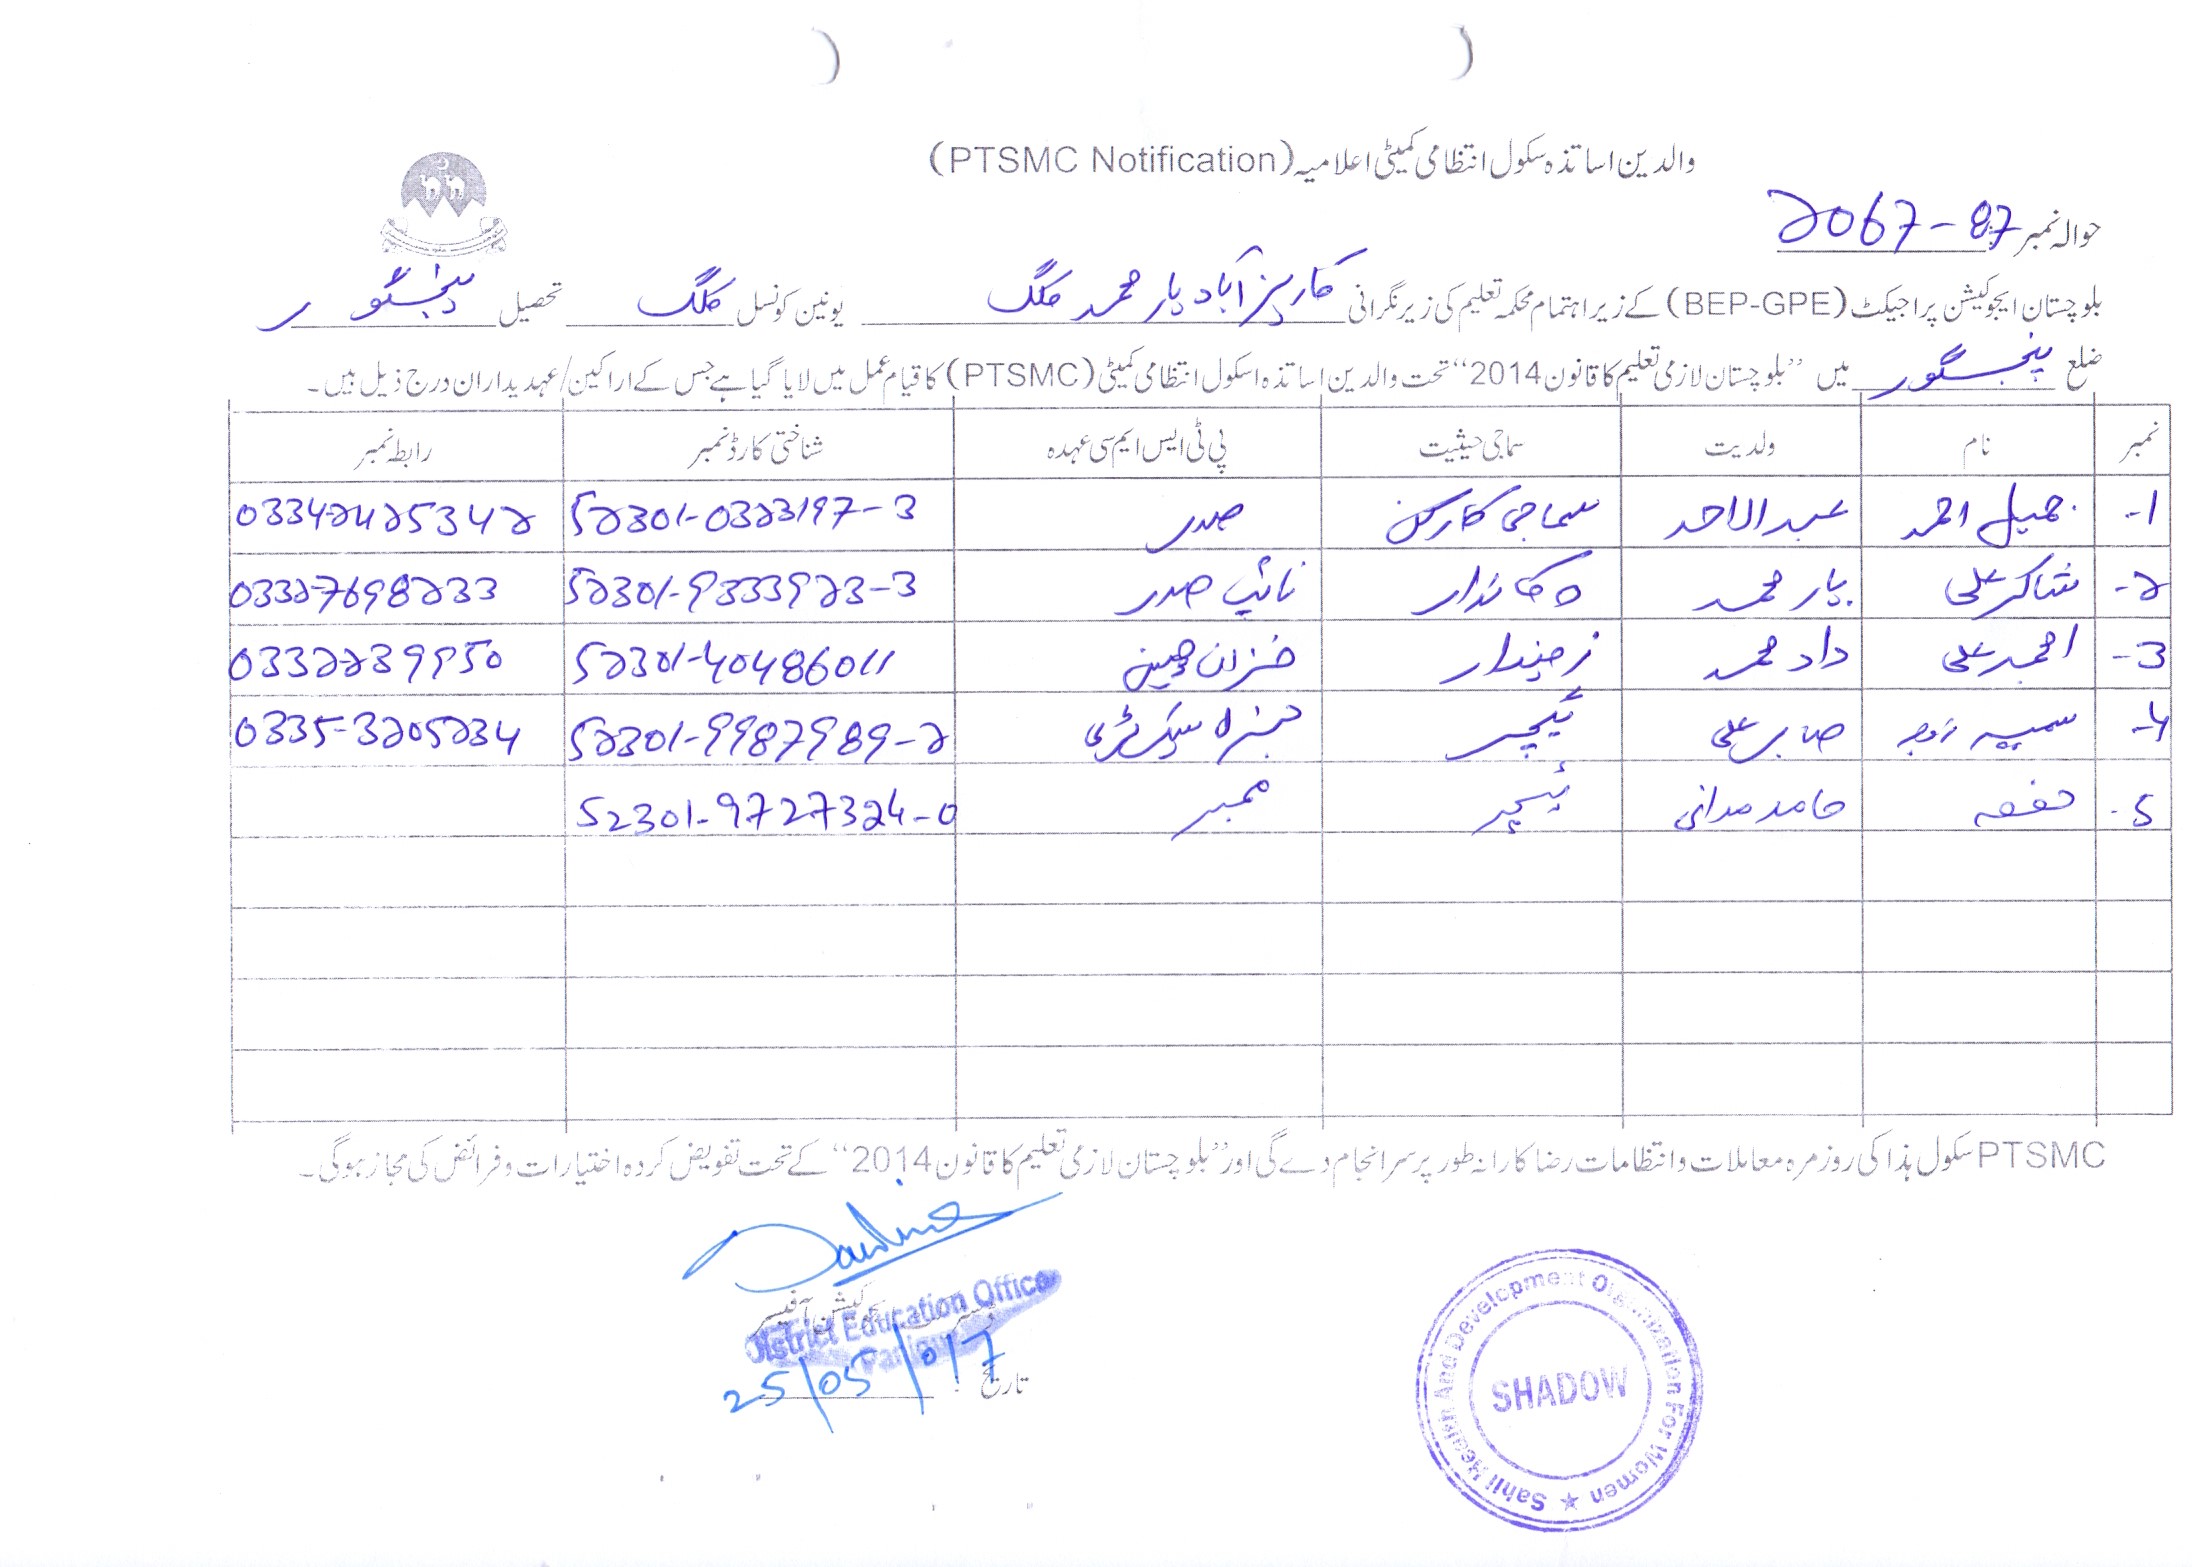 والدین اساتذہ سکول انتظامی کمیٹی اعلامیہ (PTSMC Notification)
حوالہ نمبر 2067-87
بلوچستان ایجوکیشن پراجیکٹ (BEP-GPE) کے زیر اہتمام محکمہ تعلیم کی زیر نگرانی کاریز آباد یار محمد کلگ یونین کونسل کلگ تحصیل پنجگور
ضلع پنجگور میں "بلوچستان لازمی تعلیم کا قانون 2014" تحت والدین اساتذہ اسکول انتظامی کمیٹی (PTSMC) کا قیام عمل میں لایا گیا ہے جس کے اراکین/عہدیداران درج ذیل ہیں۔
نمبر نام ولدیت سماجی حیثیت پی ٹی ایس ایم سی عہدہ شناختی کارڈ نمبر رابطہ نمبر
1- جمیل احمد عبدالاحد سماجی کارکن صدر 52301-0323197-3 03342425342
2- شاکر علی یار محمد دکاندار نائب صدر 52301-9333923-3 03327698233
3- امجد علی داد محمد زمیندار خزانچی 52301-40486011 0332239950
4- سمیہ زوجہ صابر علی ٹیچر جنرل سیکرٹری 52301-9987989-2 0335-3205234
5- حفصہ حامد مدانی ٹیچر ممبر 52301-9727324-0
PTSMC سکول ہذا کی روزمرہ معاملات و انتظامات رضا کارانہ طور پر سرانجام دے گی اور "بلوچستان لازمی تعلیم کا قانون 2014" کے تحت تفویض کردہ اختیارات و فرائض کی مجاز ہوگی۔
District Education Office
Panjgur
تاریخ: 25/05/017
Sahil Health And Development Organization For Women
SHADOW